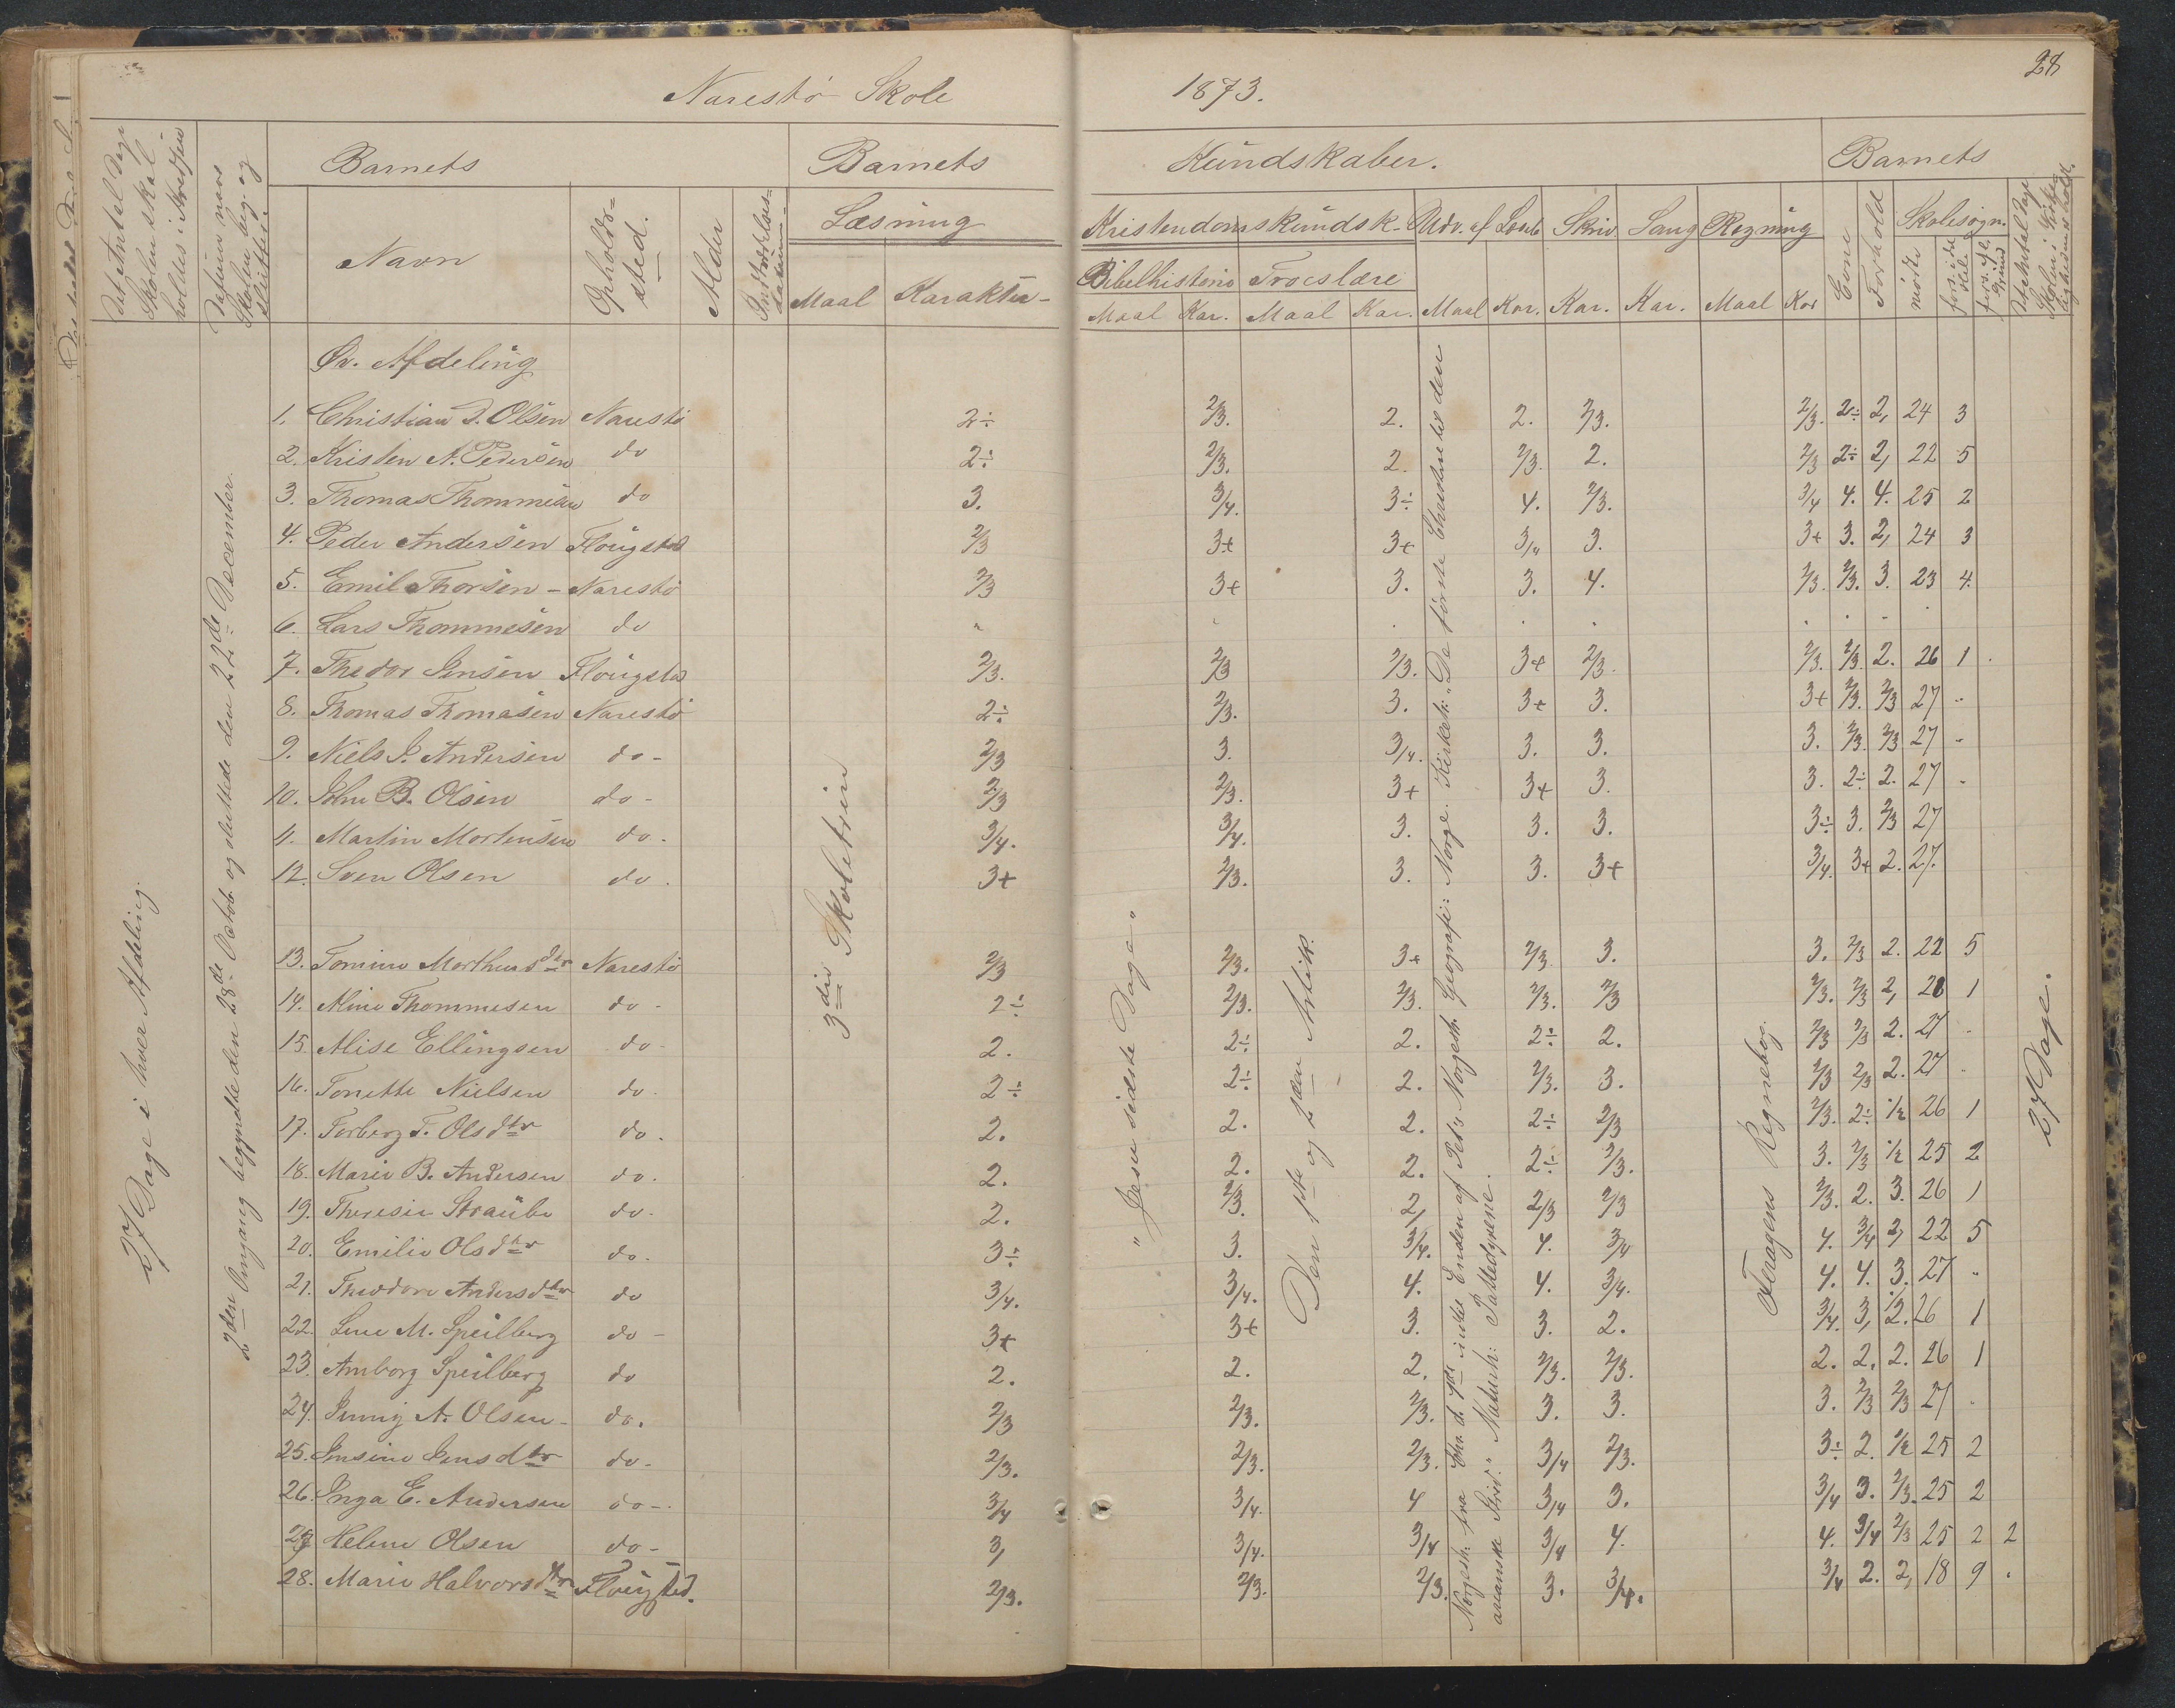 Narestø Skole
1873.
28
Det Antal Dage Skolen skal holdes i Kredsen
Datum naar Skolen beg. og sluttet.
Barnets
Barnets
Kundskaber.
Barnets
Navn
Opholds-sted.
Alder
Indtrædelses-datum
Læsning
Kristendomskundsk.
Udv. af Læseb
Skriv.
Sang
Regning
Evne
Forhold
Skolesøgn.
Det Antal Dage Skolen i Virkeligheden er holdt.
Bibelhistorie
Troeslære
mødte
Maal Karakter
Maal Kar. Maal Kar. Maal Kar. Kar. Kar. Maal Kar
Øv. Afdeling
1. Christian D. Olsen Narestø 2÷ 2/3. 2. 2. 2/3. 2/3. 2÷ 2, 24 3
2. Kristen A. Pedersen do 2÷ 2/3. 2. 2/3. 2. 2/3 2÷ 2, 22 5
3. Thomas Thommesen do 3. 3/4. 3÷ 4. 2/3. 3/4 4. 4. 25 2
4. Peder Andersen Flougstad 2/3 3+ 3+ 3/4 3. 3+ 3. 2, 24 3
5. Emil Thorsen - Narestø 2/3 3+ 3. 3. 4. 2/3. 2/3. 3. 23 4.
6. Lars Thommesen do
7. Thedor Jensen Flougstad 2/3. 2/3 2/3. 3+ 2/3. 2/3. 2/3. 2. 26 1
8. Thomas Thomasen Narestø 2÷ 2/3. 3. 3+ 3. 3+ 2/3. 2/3 27 -
9. Niels J. Andersen do - 2/3 3. 3/4. 3. 3. 3. 2/3. 2/3 27 -
10. John B. Olsen do - 2/3 2/3. 3+ 3+ 3. 3. 2÷ 2. 27 -
11. Martin Mortensen do - 3/4. 3/4. 3. 3. 3. 3÷ 3. 2/3 27
12. Sven Olsen do. 3+ 2/3. 3. 3. 3+ 3/4. 3+ 2. 27.
13. Tomine Morthensdtr Narestø 2/3 2/3. 3+ 2/3 3. 3. 2/3 2. 22 5
14. Aline Thommesen do - 2÷ 2/3. 2/3. 2/3. 2/3 2/3. 2/3 2, 28 1
15. Alise Ellingsen do - 2. 2÷ 2. 2÷ 2. 2/3 2/3 2. 27 -
16. Tonette Nielsen do. 2÷ 2÷ 2. 2/3. 3. 2/3 2/3 2. 27 -
17. Torborg T. Olsdtr do. 2. 2. 2. 2÷ 2/3 2/3. 2÷ 1/2 26 1
18. Marie B. Andersen do. 2. 2. 2. 2÷ 2/3. 3. 2/3 1/2 25 2
19. Theresie Straube do. 2. 2/3. 2, 2/3 2/3 2/3. 2. 3. 26 1
20. Emilie Olsdtr do. 3÷ 3. 3/4. 4. 3/4 4. 3/4 2, 22 5
21. Theodore Andersdtr do 3/4. 3/4. 4. 4. 3/4. 4. 4. 3. 27 "
22. Lene M. Speilberg do - 3+ 3+ 3. 3. 2. 3/4. 3, 1/2. 26 1
23. Amborg Speilberg do 2. 2. 2. 2/3. 2/3. 2. 2. 2. 26 1
24. Jenny A. Olsen - do. 2/3 2/3. 2/3. 3. 3. 3. 2/3 2/3 27 -
25. Jensine Jensdtr do - 2/3. 2/3. 2/3. 3/4 2/3. 3÷ 2. 1/2 25 2
26. Inga E. Andersen do - 3/4 3/4. 4 3/4 3. 3/4 3. 2/3. 25 2
27 Helene Olsen do - 3, 3/4. 3/4 3/4 4. 4. 3/4 2/3 25 2 2
28. Marie Halvorsdtr Flougsted. 2/3. 2/3. 2/3. 3. 3/4. 3/4 2. 2, 18 9 .
27 Dage i hver Afdeling.
2den Omgang begyndte den 28de Octob. og sluttede den 22de December.
3die Skoletrin
"Jesu sidste Dage"
Den 1ste og 2den Artik.
Norgesh. fra Chr. d. 4de indtil Enden af Norgesh. Geografi: Norge. Kirkeh: "De første Christne til den
arianske Strid." Naturh: Pattedyrene.
Regnebog.
27 Dage.